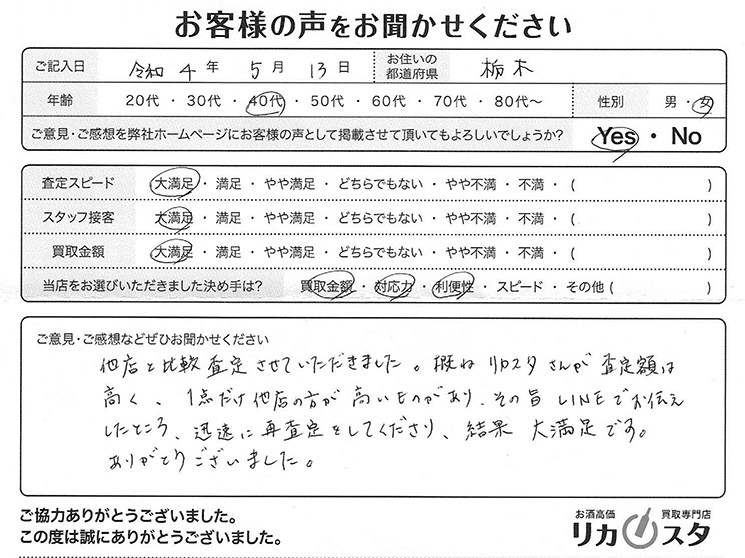 お客様の声をお聞かせください
ご記入日 令和 4 年 5 月 13 日 お住いの都道府県 栃木
年齢 20代 ・ 30代 ・ 40代 ・ 50代 ・ 60代 ・ 70代 ・ 80代～ 性別 男 ・ 女
ご意見・ご感想を弊社ホームページにお客様の声として掲載させて頂いてもよろしいでしょうか? Yes ・ No
査定スピード 大満足 ・ 満足 ・ やや満足 ・ どちらでもない ・ やや不満 ・ 不満 ・ ( )
スタッフ接客 大満足 ・ 満足 ・ やや満足 ・ どちらでもない ・ やや不満 ・ 不満 ・ ( )
買取金額 大満足 ・ 満足 ・ やや満足 ・ どちらでもない ・ やや不満 ・ 不満 ・ ( )
当店をお選びいただきました決め手は? 買取金額 ・ 対応力 ・ 利便性 ・ スピード ・ その他 ( )
ご意見・ご感想などぜひお聞かせください
他店と比較査定させていただきました。概ねリカスタさんが査定額は
高く、1点だけ他店の方が高いものがあり、その旨LINEでお伝え
したところ、迅速に再査定をしてくださり、結果 大満足です。
ありがとうございました。
ご協力ありがとうございました。
この度は誠にありがとうございました。
お酒高価 買取専門店
リカスタ